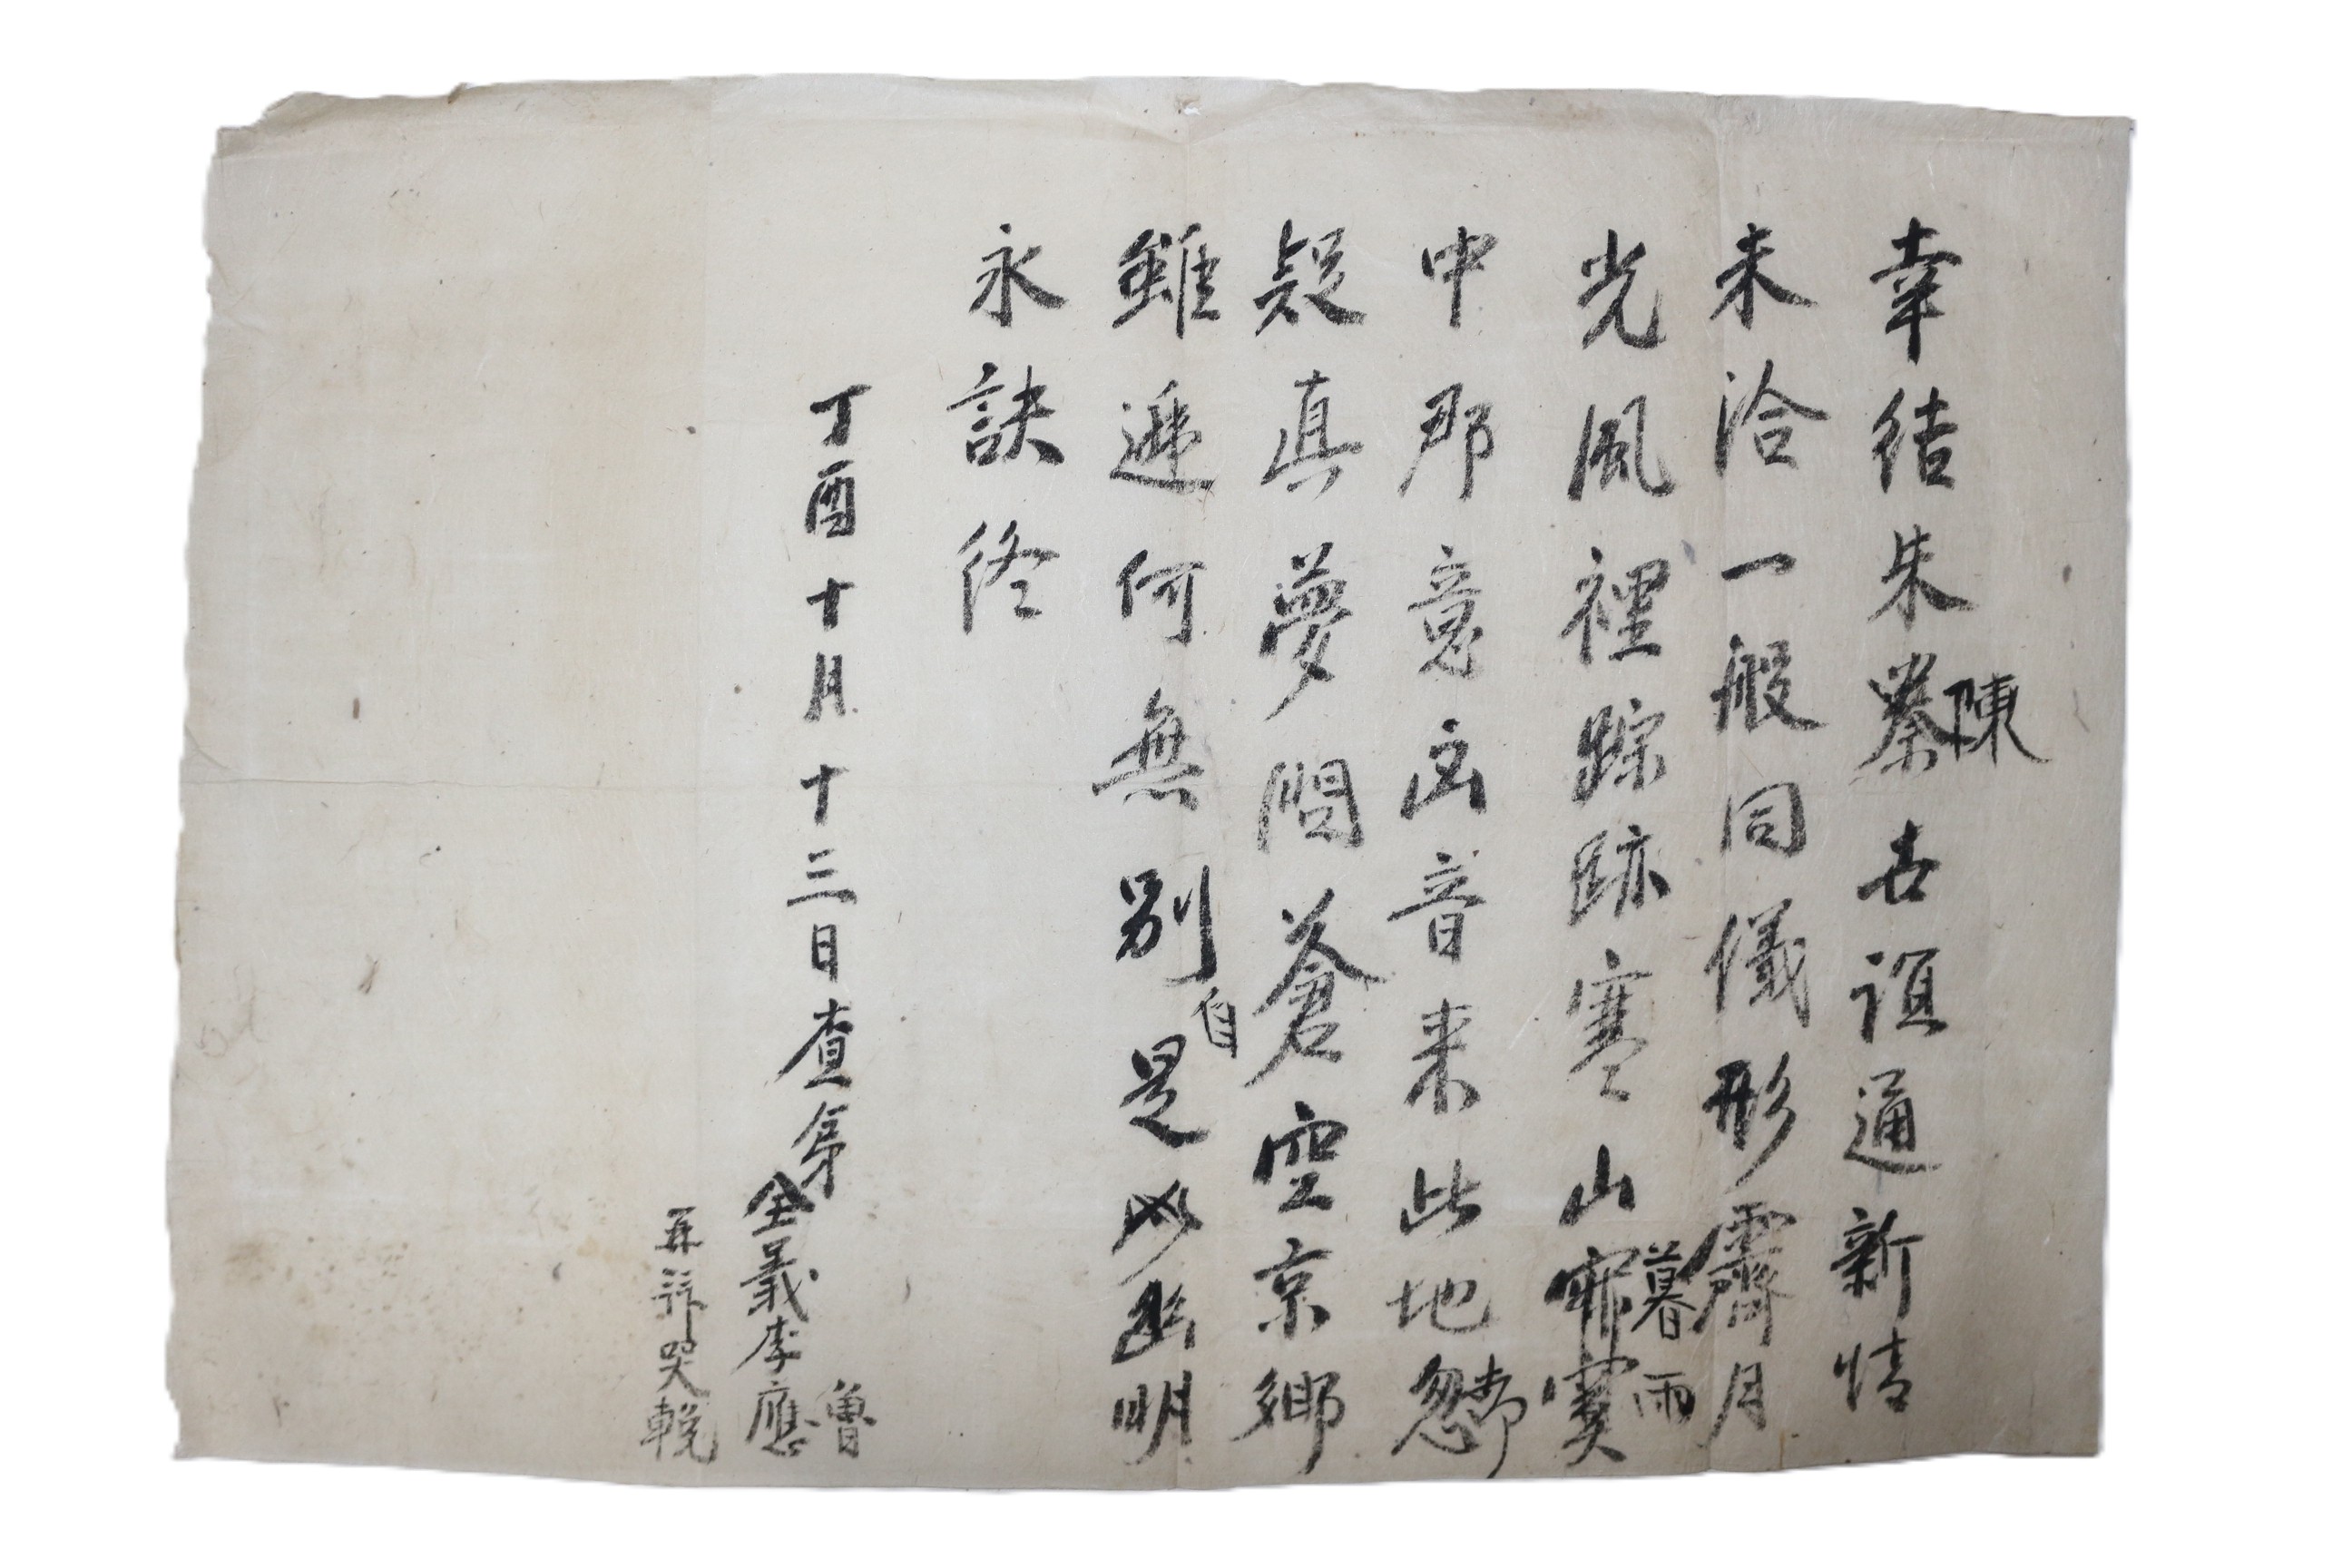 幸結朱秦陳古誼通新情
未洽一般同儀形霽月
光風裡踪跡寒山寂寞暮雨
中那意凶音来此地忽却
疑真夢問蒼空京鄉
雖遞何無別自是幽明
永訣終
丁酉十月十三日査弟
全義李應魯
再拜哭輓